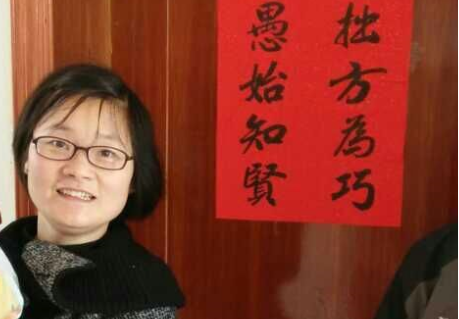 拙方為巧
愚始知賢